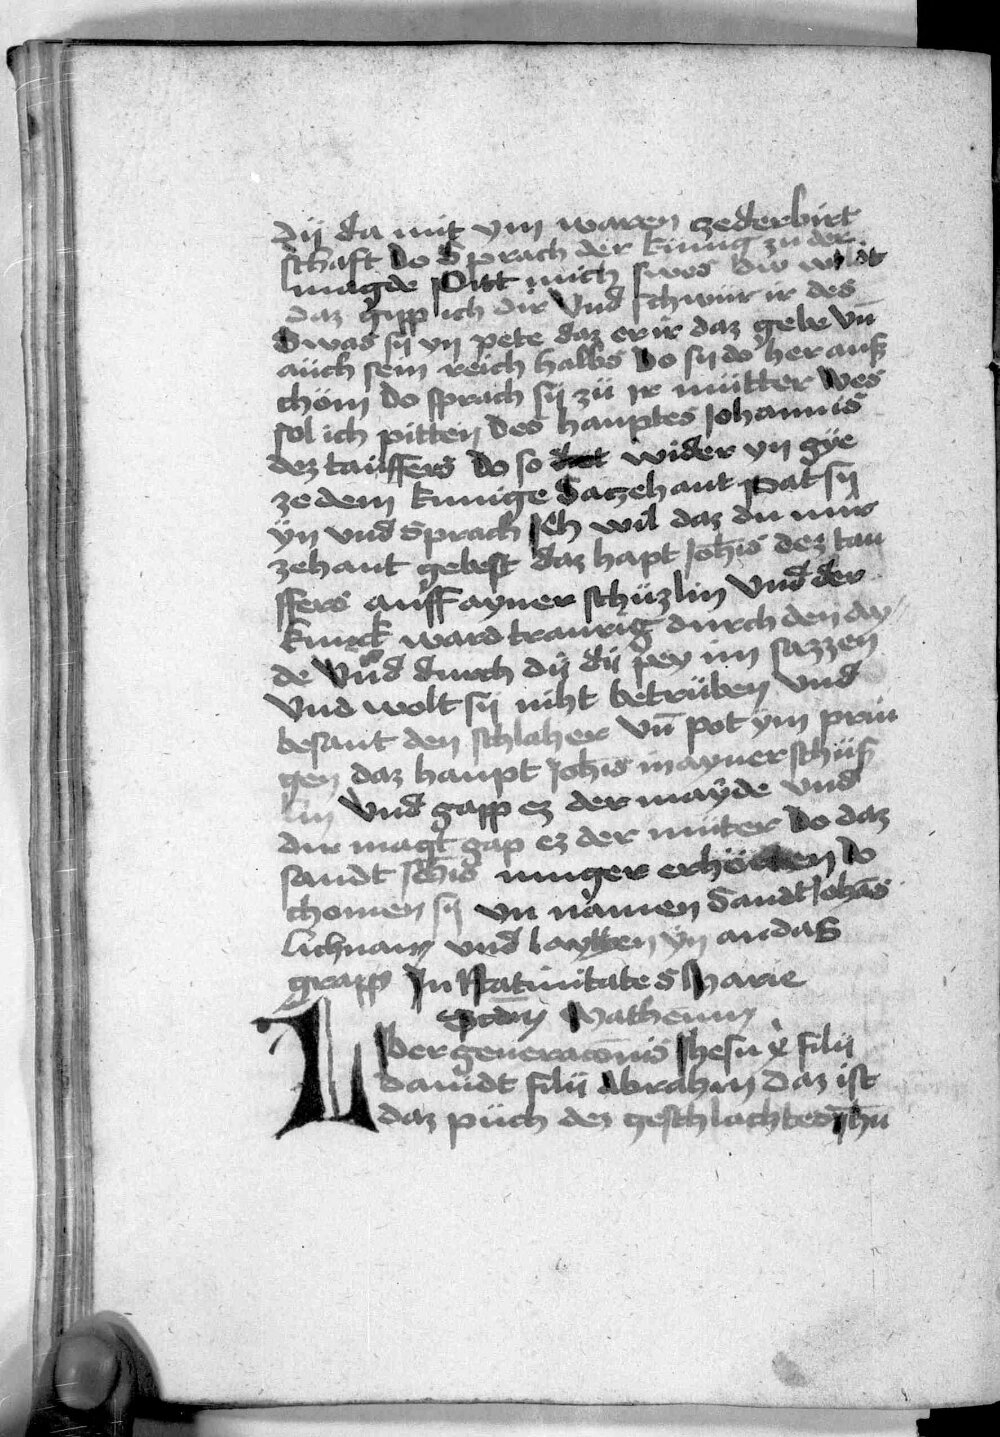 dÿ da mit ym waren zederbirt
schaft do Sprach der kunig zu der
magde Pitt mich swes dw wilðt
daz gipp ich dir Vnd schwur ir des
Swas sÿ yn pete daz er ir daz gebe vn̄
aüch sein reich halbs Do sÿ do her auß
chöm do sprach sÿ zü ir mütter Wes
sol ich pitten Des hauptes Johannis
dez tauffers do so wider yn gÿe
ze dem kunige Satzehant Pat sÿ
ÿn vnd Sprach Jch wil daz du mir
zehant gebest daz hapt Joh̄is dez tau
ffers auff ayner schüzlin Vnd der
kunck ward traurig durch den ay
de Vnd durch dÿ dÿ pey im sazzen
Vnd wolt sÿ niht betrüben Vnd
besant den schlaher vn̄ pot ym prin
gen daz haupt Joh̄is in ayner schüß
lin Vnd gapp ez der mayde vnd
diu magt gap ez der muter Do daz
sandt Joh̄is iunger erhörten do
chomen sÿ vn namen Sandt Joh̄as
lichnam vnd laytten ÿn an das
grapp In Natiuitate S Marie
Scd̄m Matheum
Liber generacōnis Jhesu xp̄i filii
Dauidt filii Abrahm Daz ist
daz püch dez geschlachtes Jh̄u